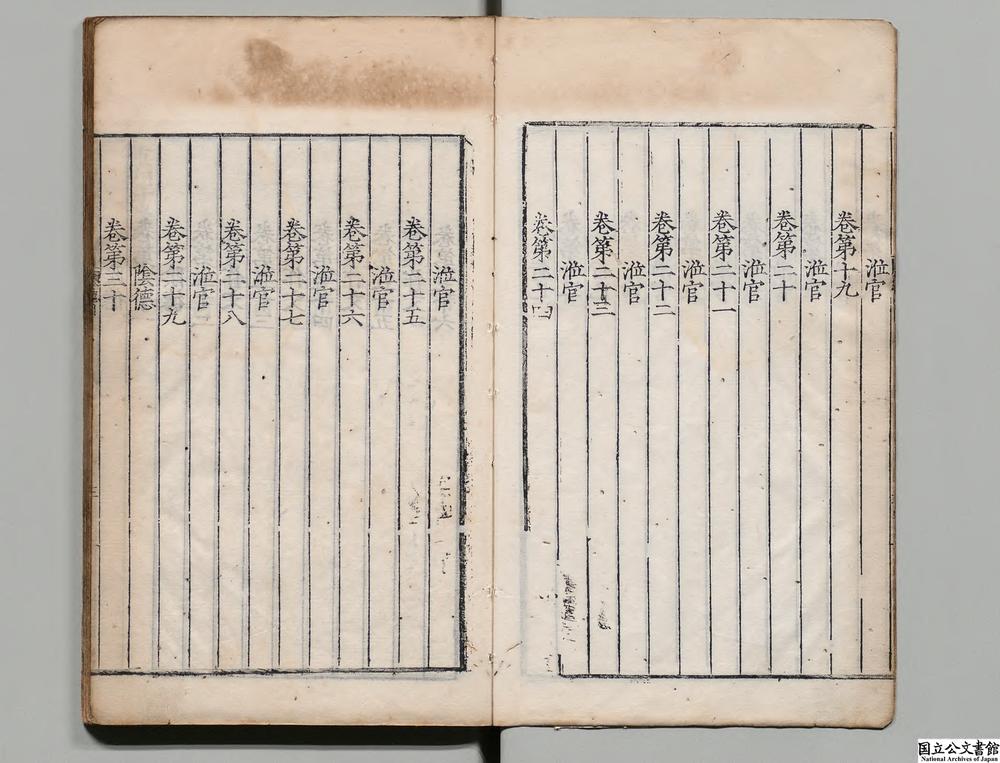 涖官
卷第十九
涖官
卷第二十
涖官
卷第二十一
涖官
卷第二十二
涖官
卷第二十三
涖官
卷第二十四
涖官
卷第二十五
涖官
卷第二十六
涖官
卷第二十七
涖官
卷第二十八
涖官
卷第二十九
隂德
卷第三十
国立公文書館
National Archives of Japan